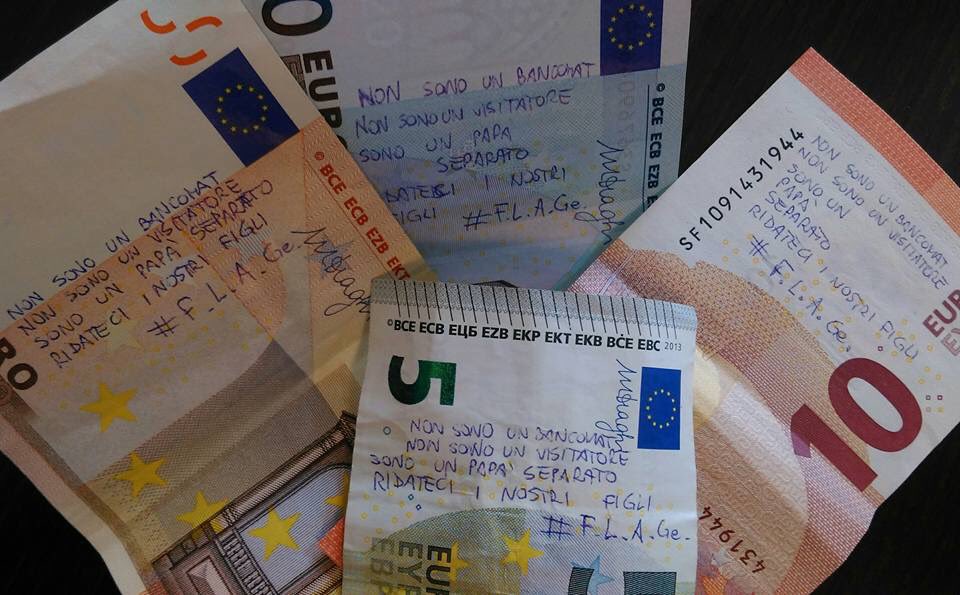 NON SONO UN BANCOMAT
NON SONO UN VISITATORE
SONO UN PAPA SEPARATO
RIDATECI I NOSTRI FIGLI
# F.L.A.Ge.
© BCE ECB EZB EKT
RO
0 EURO
NON SONO UN BANCOMAT
NON SONO UN VISITATORE
SONO UN PAPA
SEPARATO
RIDATECI I NOSTRI
FIGLI # F.L.A.Ge.
© BCE ECB EZB
SF1091431944
NON SONO UN BANCOMAT
NON SONO UN VISITATORE
SONO UN
PAPA'
SEPARATO
RIDATECI I NOSTRI FIGLI
# F.L.A.Ge.
EUR
10
431944
©BCE ECB ЕЦБ EZB EKP EKT EKB BĊE EBC 2013
5
NON SONO UN BANCOMAT
NON SONO UN VISITATORE
SONO UN PAPA' SEPARATO
RIDATECI I NOSTRI FIGLI
# F.L.A.Ge.
EUR